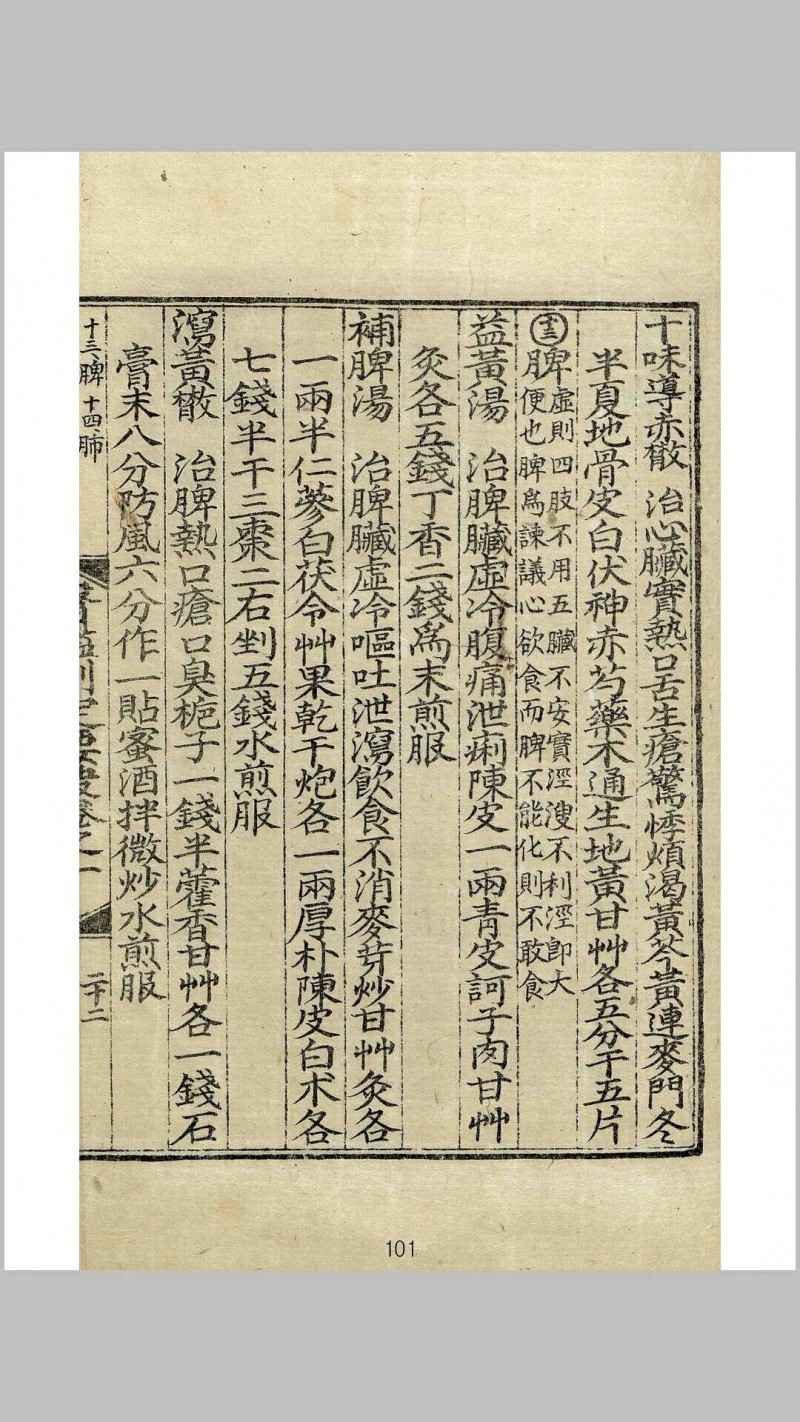 十味導赤散 治心臟實熱口舌生瘡驚悸煩渴黃芩黃連麥門冬
半夏地骨皮白伏神赤芍藥木通生地黃甘艸各五分干五片
十三 脾 虛則四肢不用五臟不安實涇溲不利涇卽大
便也脾爲諫議心欲食而脾不能化則不敢食
益黃湯 治脾臟虛冷腹痛泄痢陳皮一兩青皮訶子肉甘艸
灸各五錢丁香二錢爲末煎服
補脾湯 治脾臟虛冷嘔吐泄瀉飮食不消麥芽炒甘艸灸各
一兩半仁蔘白茯令艸果乾干炮各一兩厚朴陳皮白朮各
七錢半干三棗二右剉五錢水煎服
瀉黃散 治脾熱口瘡口臭梔子一錢半藿香甘艸各一錢石
膏末八分防風六分作一貼蜜酒拌微炒水煎服
十三脾 十四肺
卷之一
二十二
101